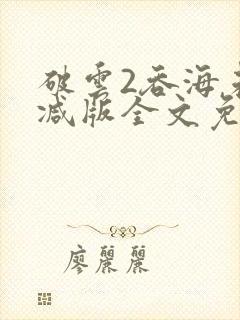 破雲2吞海未
减版全文免
廖麗麗